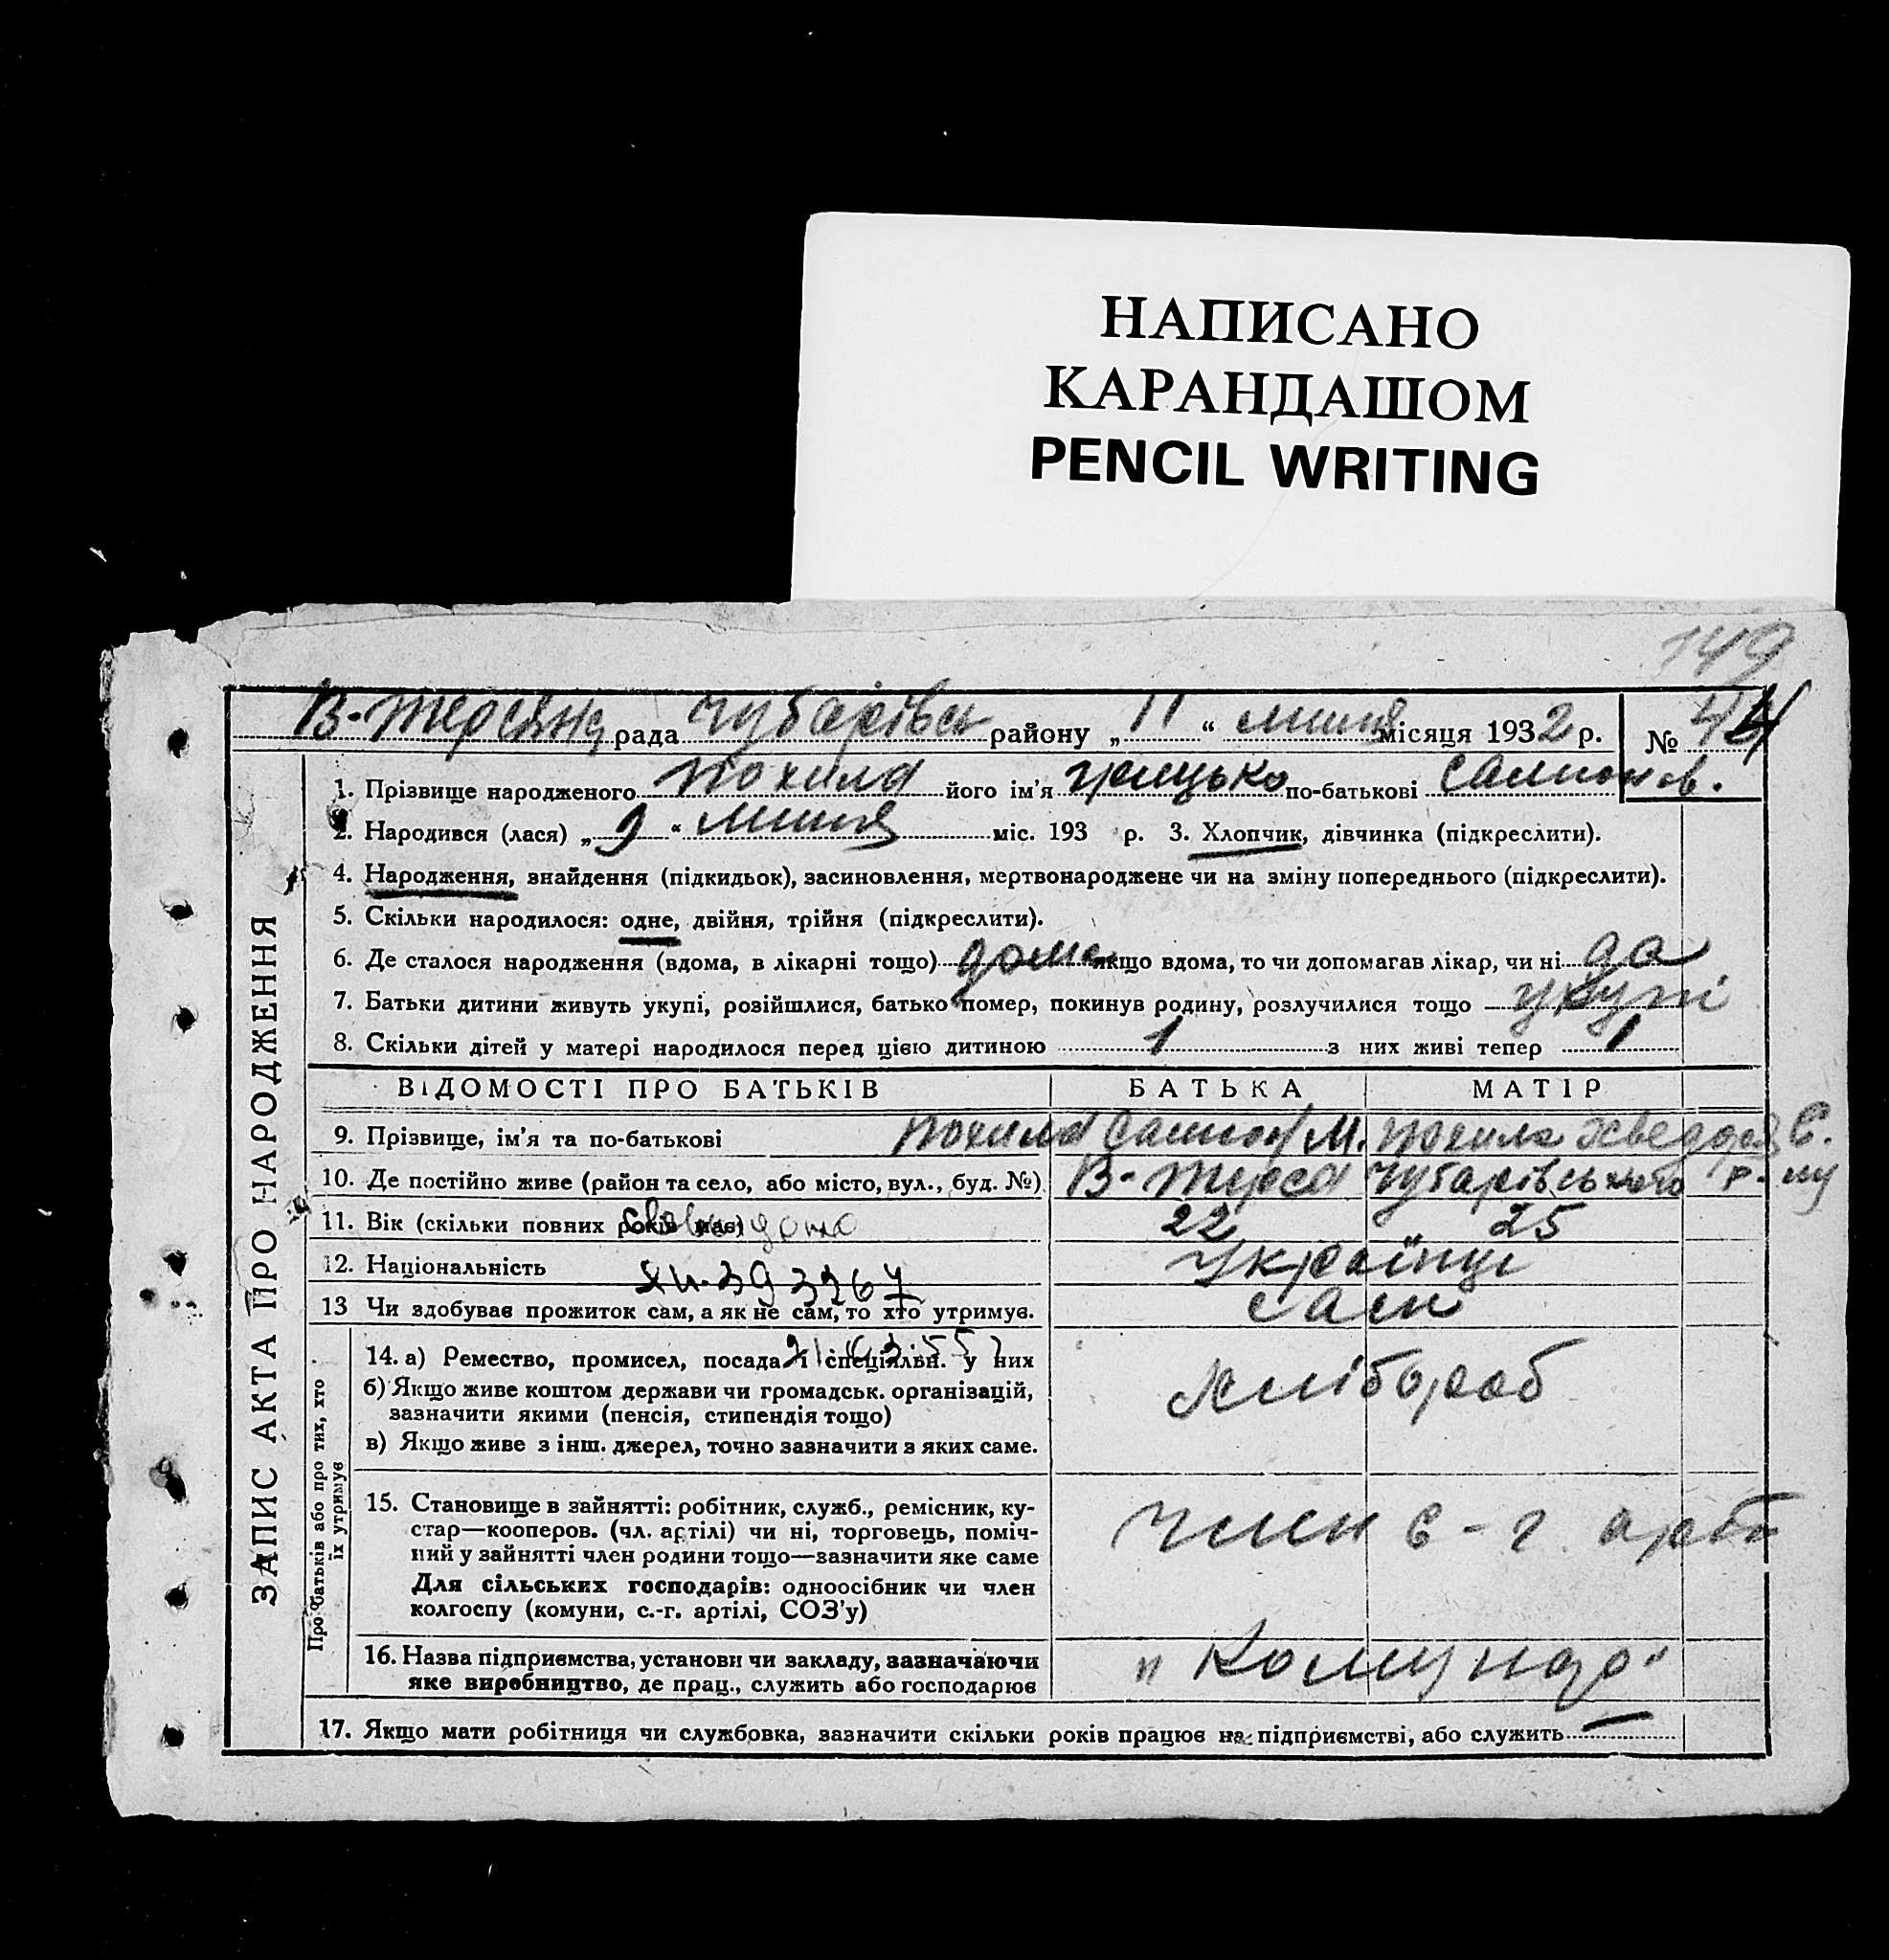 НАПИСАНО
КАРАНДАШОМ
PENCIL WRITING
149
В-Терсянс рада Чубарівськ району „ 11 “ липня місяця 1932 р. № 44
1. Прізвище народженого Похила його ім'я Грицько по-батькові Самионов.
2. Народився (лася) „ 9 “ липня міс. 193 р. 3. Хлопчик, дівчинка (підкреслити).
4. Народження, знайдення (підкидьок), засиновлення, мертвонароджене чи на зміну попереднього (підкреслити).
5. Скільки народилося: одне, двійня, трійня (підкреслити).
6. Де сталося народження (вдома, в лікарні тощо) дома якщо вдома, то чи допомагав лікар, чи ні да
7. Батьки дитини живуть укупі, розійшлися, батько помер, покинув родину, розлучилися тощо укупі
8. Скільки дітей у матері народилося перед цією дитиною 1 з них живі тепер 1
ВІДОМОСТІ ПРО БАТЬКІВ БАТЬКА МАТІР
9. Прізвище, ім'я та по-батькові Похила Самион М. Похила Хведора Є.
10. Де постійно живе (район та село, або місто, вул., буд. №) В-Терса Чубарівського р-ну
11. Вік (скільки повних років має) 22 25
12. Національність Українці
13 Чи здобуває прожиток сам, а як не сам, то хто утримує. сам
14. а) Ремество, промисел, посада і спеціяльн. у них хлібороб
б) Якщо живе коштом держави чи громадськ. організацій,
зазначити якими (пенсія, стипендія тощо)
в) Якщо живе з інш. джерел, точно зазначити з яких саме.
15. Становище в зайнятті: робітник, служб., ремісник, ку-
стар—кооперов. (чл. артілі) чи ні, торговець, поміч- член с-г. арт
ний у зайнятті член родини тощо—зазначити яке саме
Для сільських господарів: одноосібник чи член
колгоспу (комуни, с.-г. артілі, СОЗ'у)
16. Назва підприємства, установи чи закладу, зазначаючи „Комунар“
яке виробництво, де прац., служить або господарює
17. Якщо мати робітниця чи службовка, зазначити скільки років працює на підприємстві, або служить —
ЗАПИС АКТА ПРО НАРОДЖЕННЯ
Про батьків або про тих, хто
їх утримує